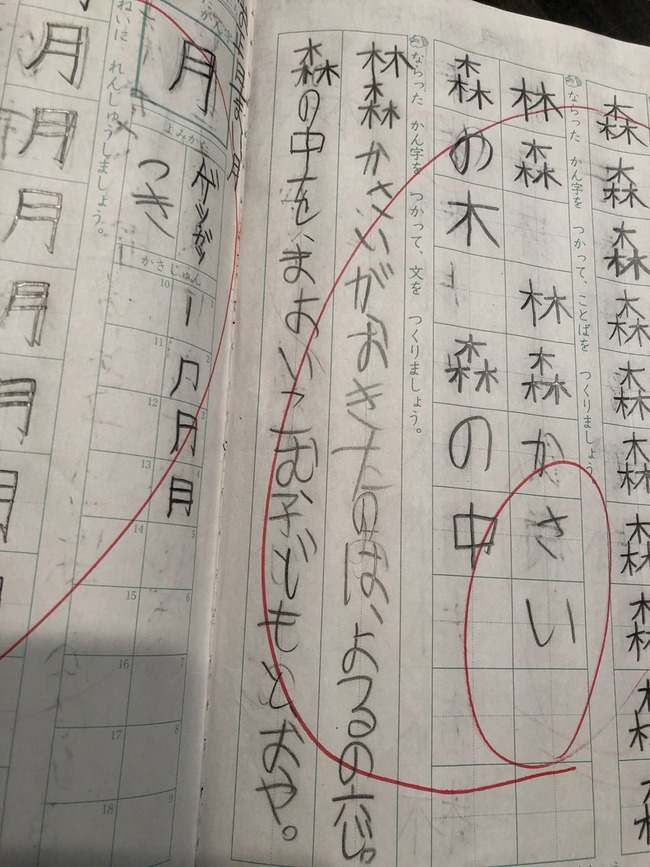 森森森森森森森森
ならった かん字を つかって、ことばを つくりましょう
林森 林森かさい
森の木 森の中
ならった かん字を つかって、文を つくりましょう。
林森かさいがおきたのは、よるの六じ。
森の中を、まよいこむ子どもとおや。
月
よみかた
ゲツガツ
つき
かきじゅん
1 2 3 4 5 6 7 8 9
10 11 12 13 14 15 16 17 18
ねいに れんしゅうしましょう。
月月月月